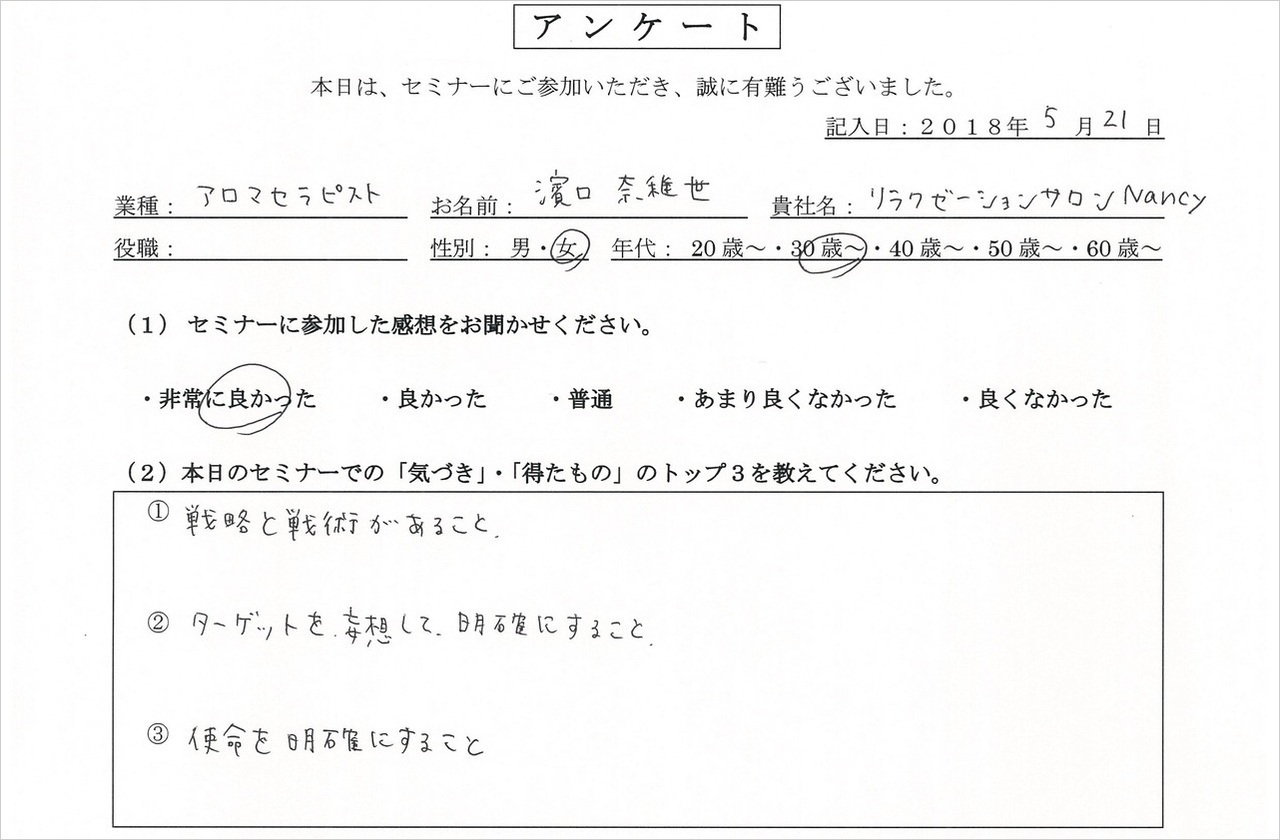 アンケート
本日は、セミナーにご参加いただき、誠に有難うございました。
記入日：２０１８年 5 月 21 日
業種： アロマセラピスト お名前： 濱口 奈緒世 貴社名： リラクゼーションサロンNancy
役職： 性別： 男・女 年代： 20歳～・30歳～・40歳～・50歳～・60歳～
（１） セミナーに参加した感想をお聞かせください。
・非常に良かった ・良かった ・普通 ・あまり良くなかった ・良くなかった
（２）本日のセミナーでの「気づき」・「得たもの」のトップ３を教えてください。
① 戦略と戦術があること.
② ターゲットを.妄想して.明確にすること.
③ 使命を明確にすること